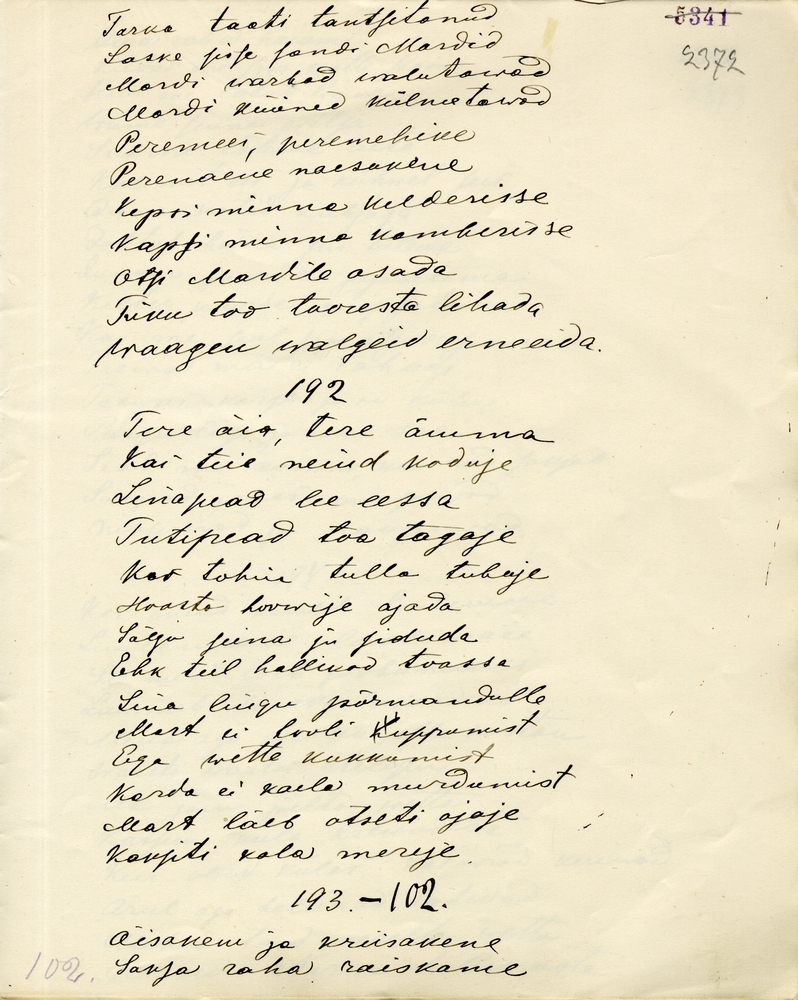 5341
2372
Tarka taati tantsitanud
Laske sisse sandi Mardid
Mardi warbad walutawad
Mardi küüned külmetawad
Peremees, peremehike
Perenaene naesukene
Kepsi minna kelderisse
Kapsi minna kamberisse
Otsi Mardile osada
Tüku too tooresta lihada
Waagen walgeid erneeida.
192
Tere äia, tere ämma
Kas teie neiud koduje
Linapead lee eessa
Tutipead toa tagaje
Kas tohin tulla tubaje
Hoosta hoowije ajada
Sälgu seina ju siduda
Ehk teil hallikad toassa
Sina lingu põrmandulle
Mart ei hooli kuppumist
Ega wette kukkumist
Karda ei kaela murdumist
Mart läeb otseti ajaje
Kausiti kala mereje
193. – 102.
Äisakene ja kriisakene
Saksa raha raiskame
102.